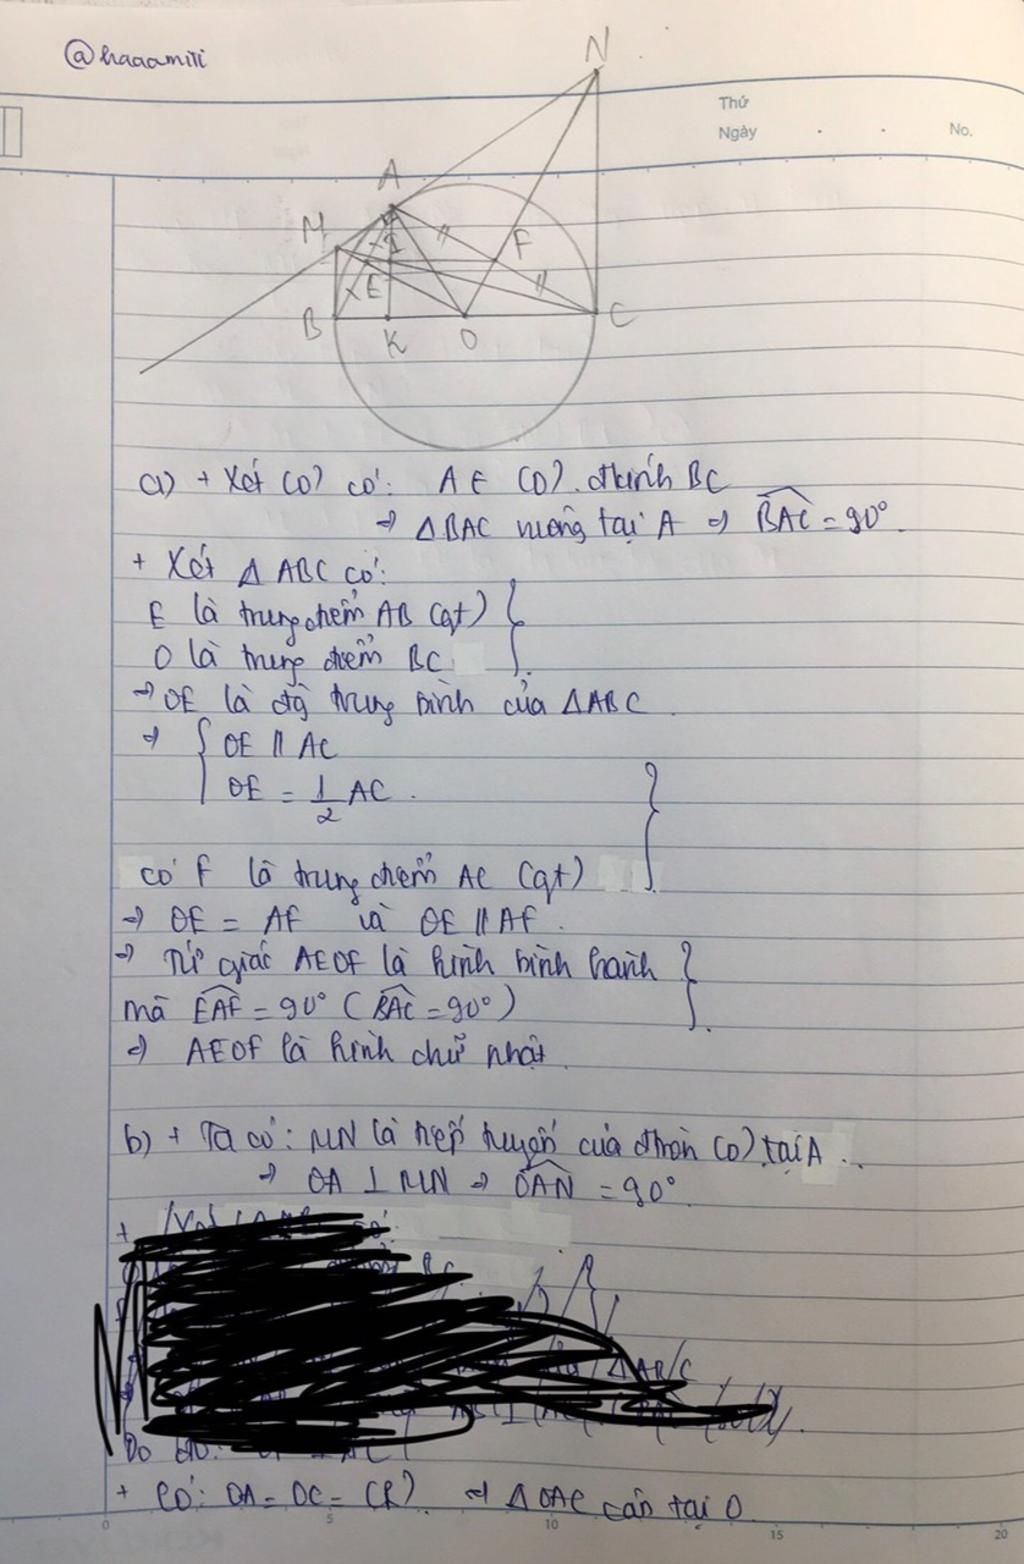 @haaamiti
N
Thứ
Ngày
No.
A
M
I
F
E
B
K
O
C
a) + Xét (O) có: A ∈ (O) đkính BC
⇒ △BAC vuông tại A ⇒ BAC = 90°.
+ Xét △ABC có:
E là trung điểm AB (gt)
O là trung điểm BC
⇒ OE là đg trung bình của △ABC.
⇒ { OE // AC
OE = 1/2 AC.
có F là trung điểm AC (gt)
⇒ OE = AF và OE // AF.
⇒ Tứ giác AEOF là hình bình hành
mà EAF = 90° (BAC = 90°)
⇒ AEOF là hình chữ nhật
b) + Ta có: MN là tiếp tuyến của đtròn (O) tại A..
⇒ OA ⊥ MN ⇒ OAN = 90°
+
△ABC
+ Có: OA = OC = (R) ⇒ △OAC cân tại O
0 5 10 15 20